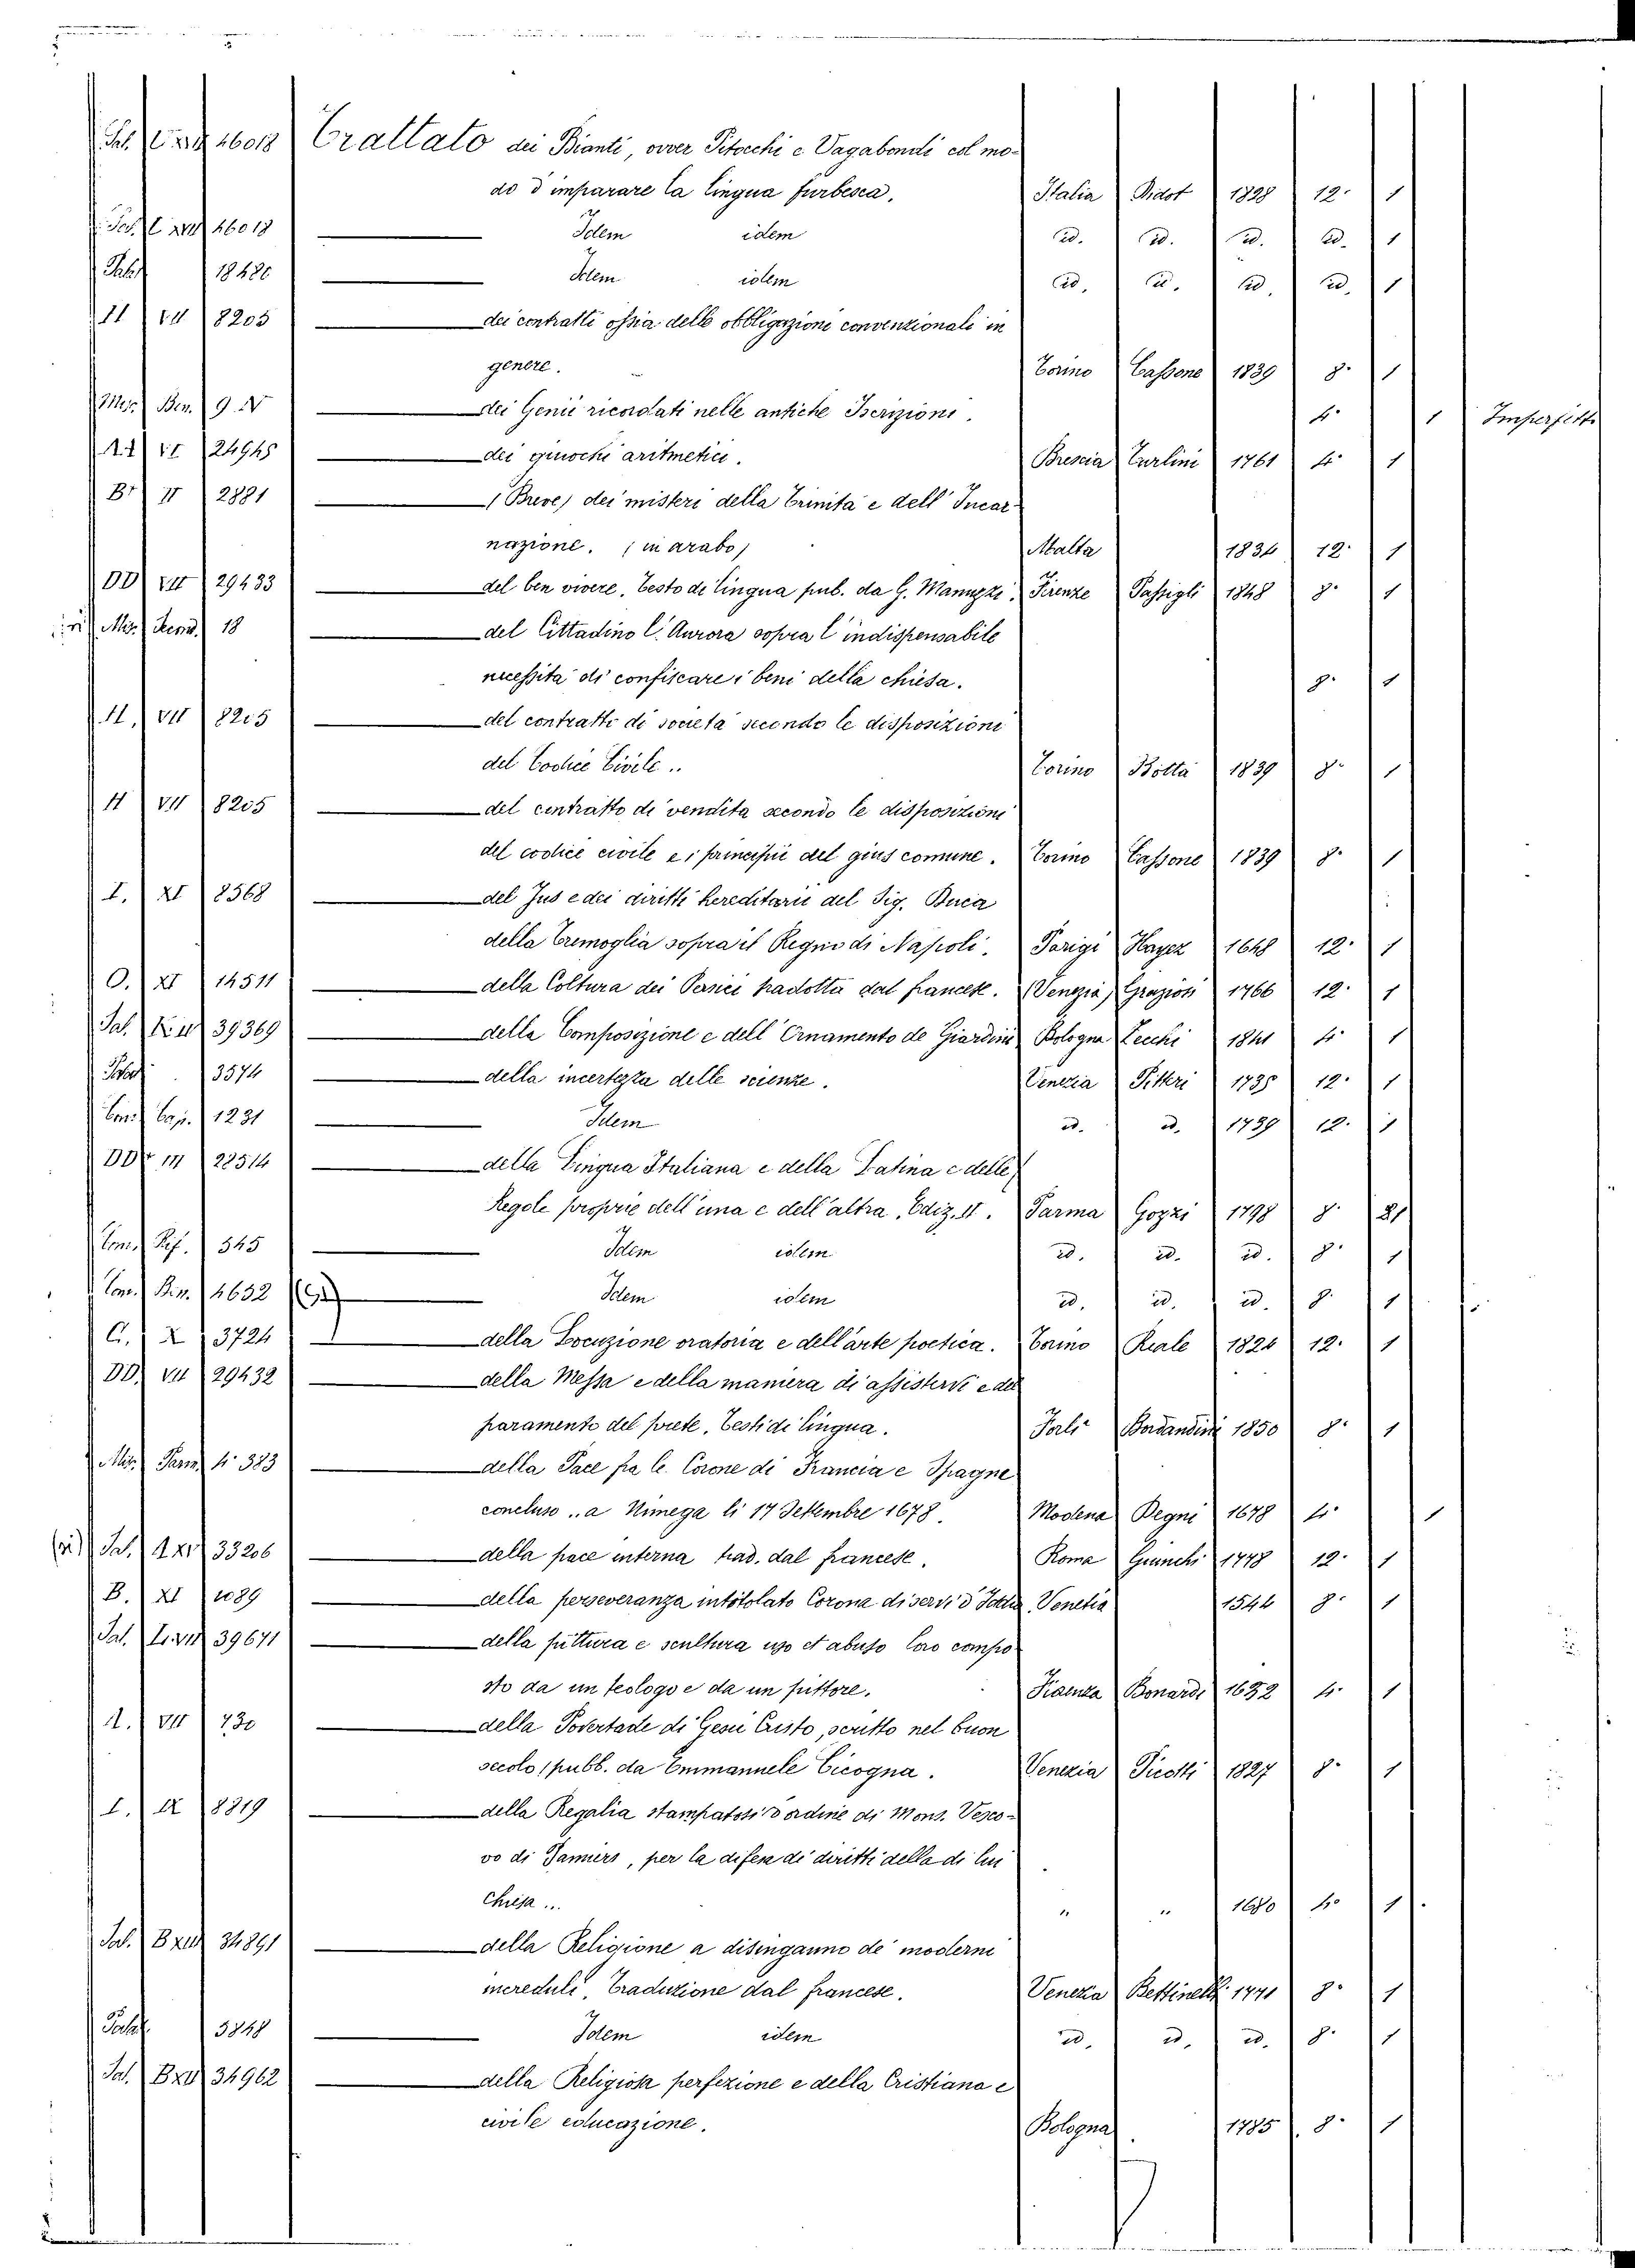 Trattato dei Bianti, over Pitocchi e Vagabondi col mo-
do d'imparare la lingua furbesca. Italia Didot 1828 12. 1
46018 Idem idem id. id. id. id. 1
18480 Idem idem id. id. id. id. 1
H VII 8205 dei contratti ossia delle obbligazioni convenzionali in
genere. Torino Cassone 1839 8. 1
Mss. Ben. 9. dei Genii ricordati nelle antiche Iscrizioni. 4. 1 Imperfetto
24945 dei giuochi aritmetici. Brescia Turlini 1761 4. 1
2881 (Breve) dei misteri della Trinità e dell' Incar-
nazione. (in arabo) Malta 1834 12. 1
DD VII 29433 del ben vivere. Testo di lingua pub. da G. Manuzzi. Firenze Passigli 1848 8. 1
18 del Cittadino C. Aurora sopra l'indispensabile
necessità di confiscare i beni della chiesa. 8. 1
H. VII 8205 del contratto di società secondo le disposizioni
del Codice Civile.. Torino Botta 1839 8. 1
H VII 8205 del contratto di vendita secondo le disposizioni
del codice civile e i principii del gius comune. Torino Cassone 1839 8. 1
I. XI 8568 del Jus e dei diritti hereditarii del Sig. Duca
della Tremoglia sopra il Regno di Napoli. Parigi Hayez 1648 12. 1
O. XI 14511 della Coltura dei Persici tradotta dal francese. (Venezia) Graziosi 1766 12. 1
Sal. 39369 della Composizione e dell' Ornamento de Giardini Bologna Cecchi 1841 4. 1
3574 della incertezza delle scienze. Venezia Pitteri 1735 12. 1
Con. Cap. 1231 Idem id. id. 1739 12. 1
22514 della Lingua Italiana e della Latina e delle
Regole proprie dell'una e dell'altra, Ediz. II. Parma Gozzi 1798 8. 21
Conv. Rif. 545 Idem idem id. id. id. 8. 1
Conv. Bin. 4632 Idem idem id. id. id. 8. 1
X 3724 della Locuzione oratoria e dell'arte poetica. Torino Reale 1824 12. 1
DD. VII 29432 della Messa e della maniera di assistervi e del
paramento del prete. Testi di lingua. Forlì Bordandini 1850 8. 1
383 della Pace fra le Corone di Francia e Spagne
concluso .. a Nimega li 17 Settembre 1678. Modena Degni 1678 4. 1
Sal. 33206 della pace interna trad. dal francese. Roma Giunchi 1778 12. 1
B. XI 1089 della perseveranza intitolato Corona di servi d'Iddio. Venetia 1544 8. 1
Sal. 39671 della pittura e scultura uso et abuso loro compo
sto da un teologo e da un pittore. Fiorenza Bonardi 1652 4. 1
VII 730 della Povertade di Gesù Cristo, scritto nel buon
secolo, pubb. da Emmanuele Cicogna. Venezia Picotti 1827 8. 1
I. IX 8819 della Regalia stampatosi d'ordine di Mons. Vesco-
vo di Pamiers, per la difesa di diritti della di lui
Chiesa ... " " 1680 4. 1
Sal. 34891 della Religione a disinganno de' moderni
increduli, Traduzione dal francese. Venezia Bettinelli 1771 8. 1
5848 Idem idem id. id. id. 8. 1
Sal. 34962 della Religiosa perfezione e della Cristiana e
civile educazione. Bologna 1785 8. 1